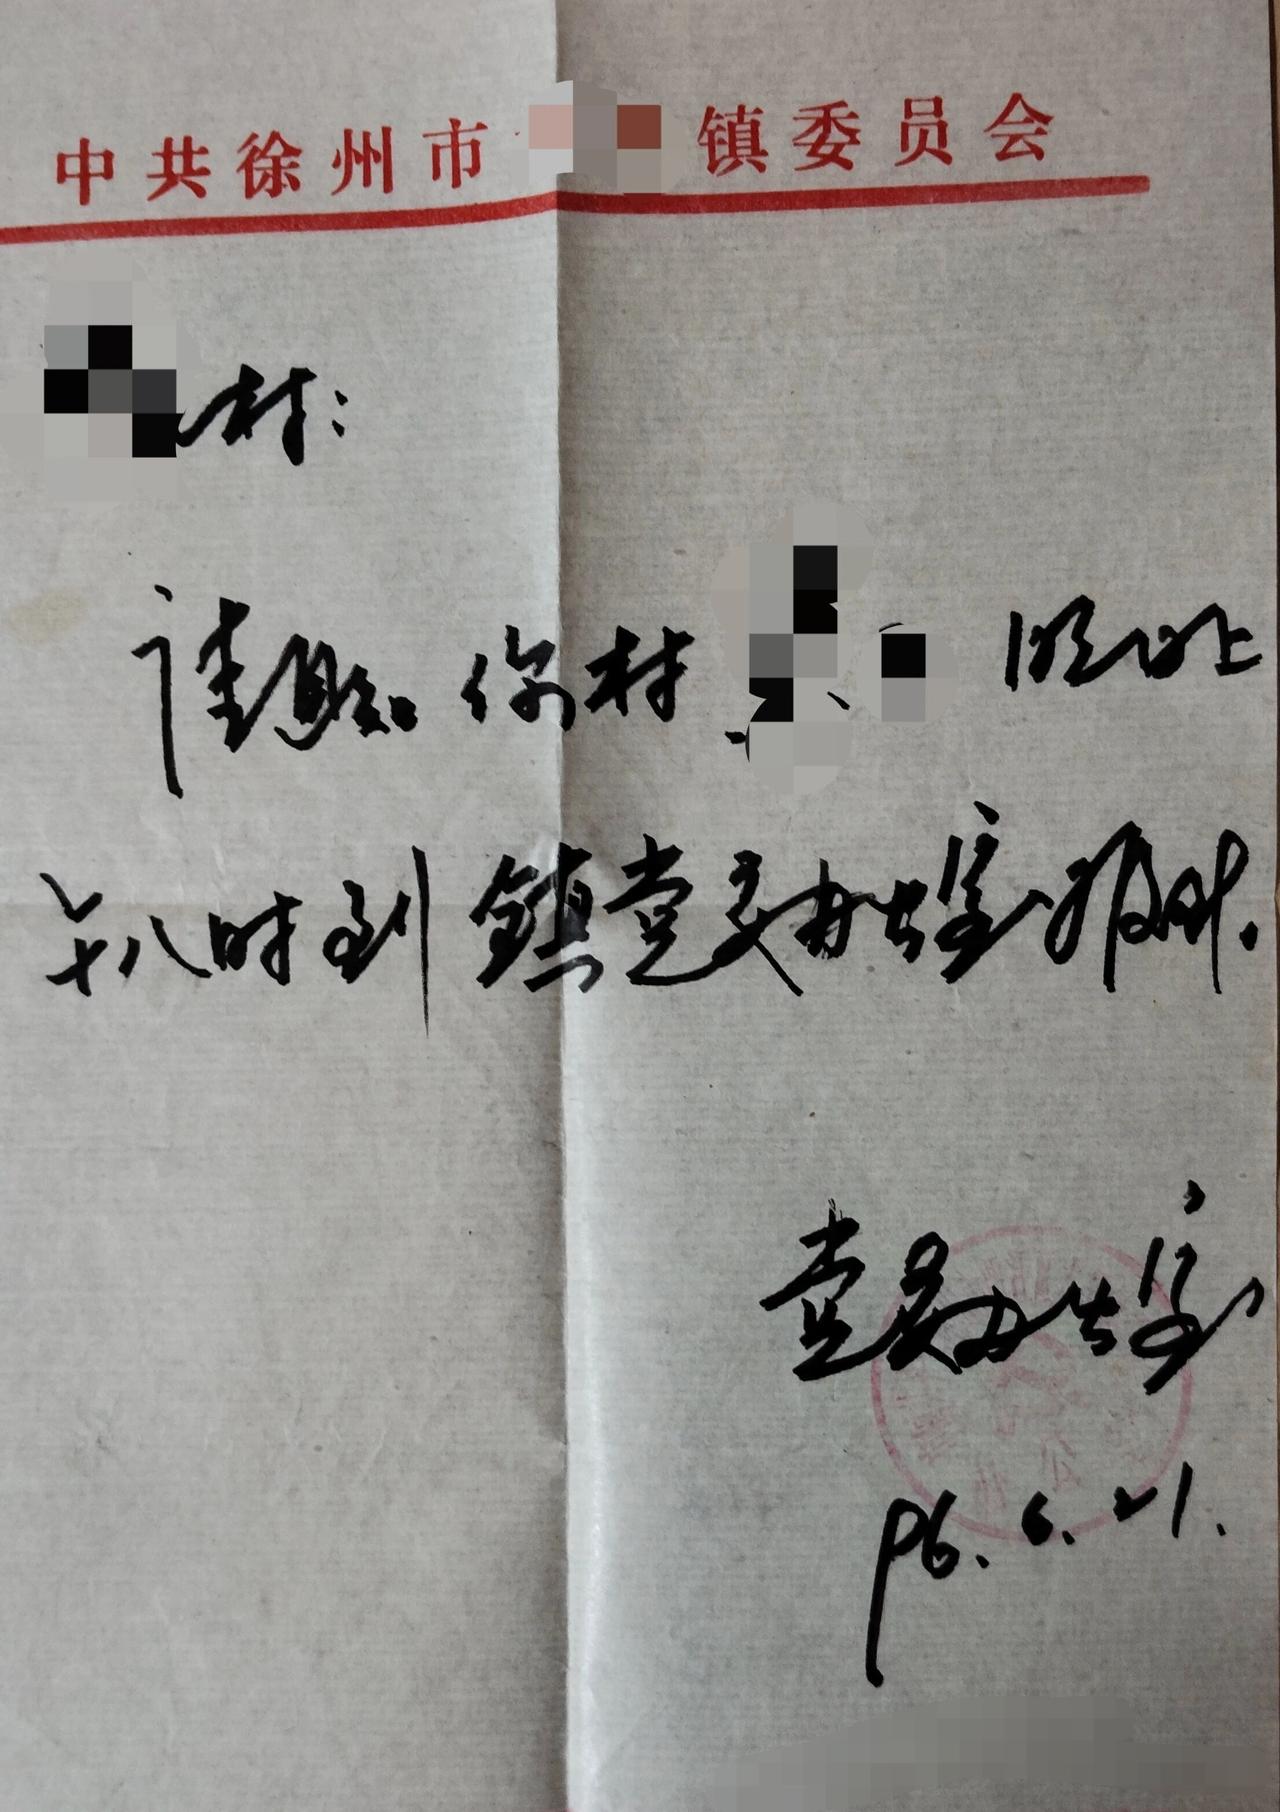 中共徐州市 镇委员会
村：
请通知你村 明日上
午八时到镇党委办公室报到.
党委办公室
96.6.21.